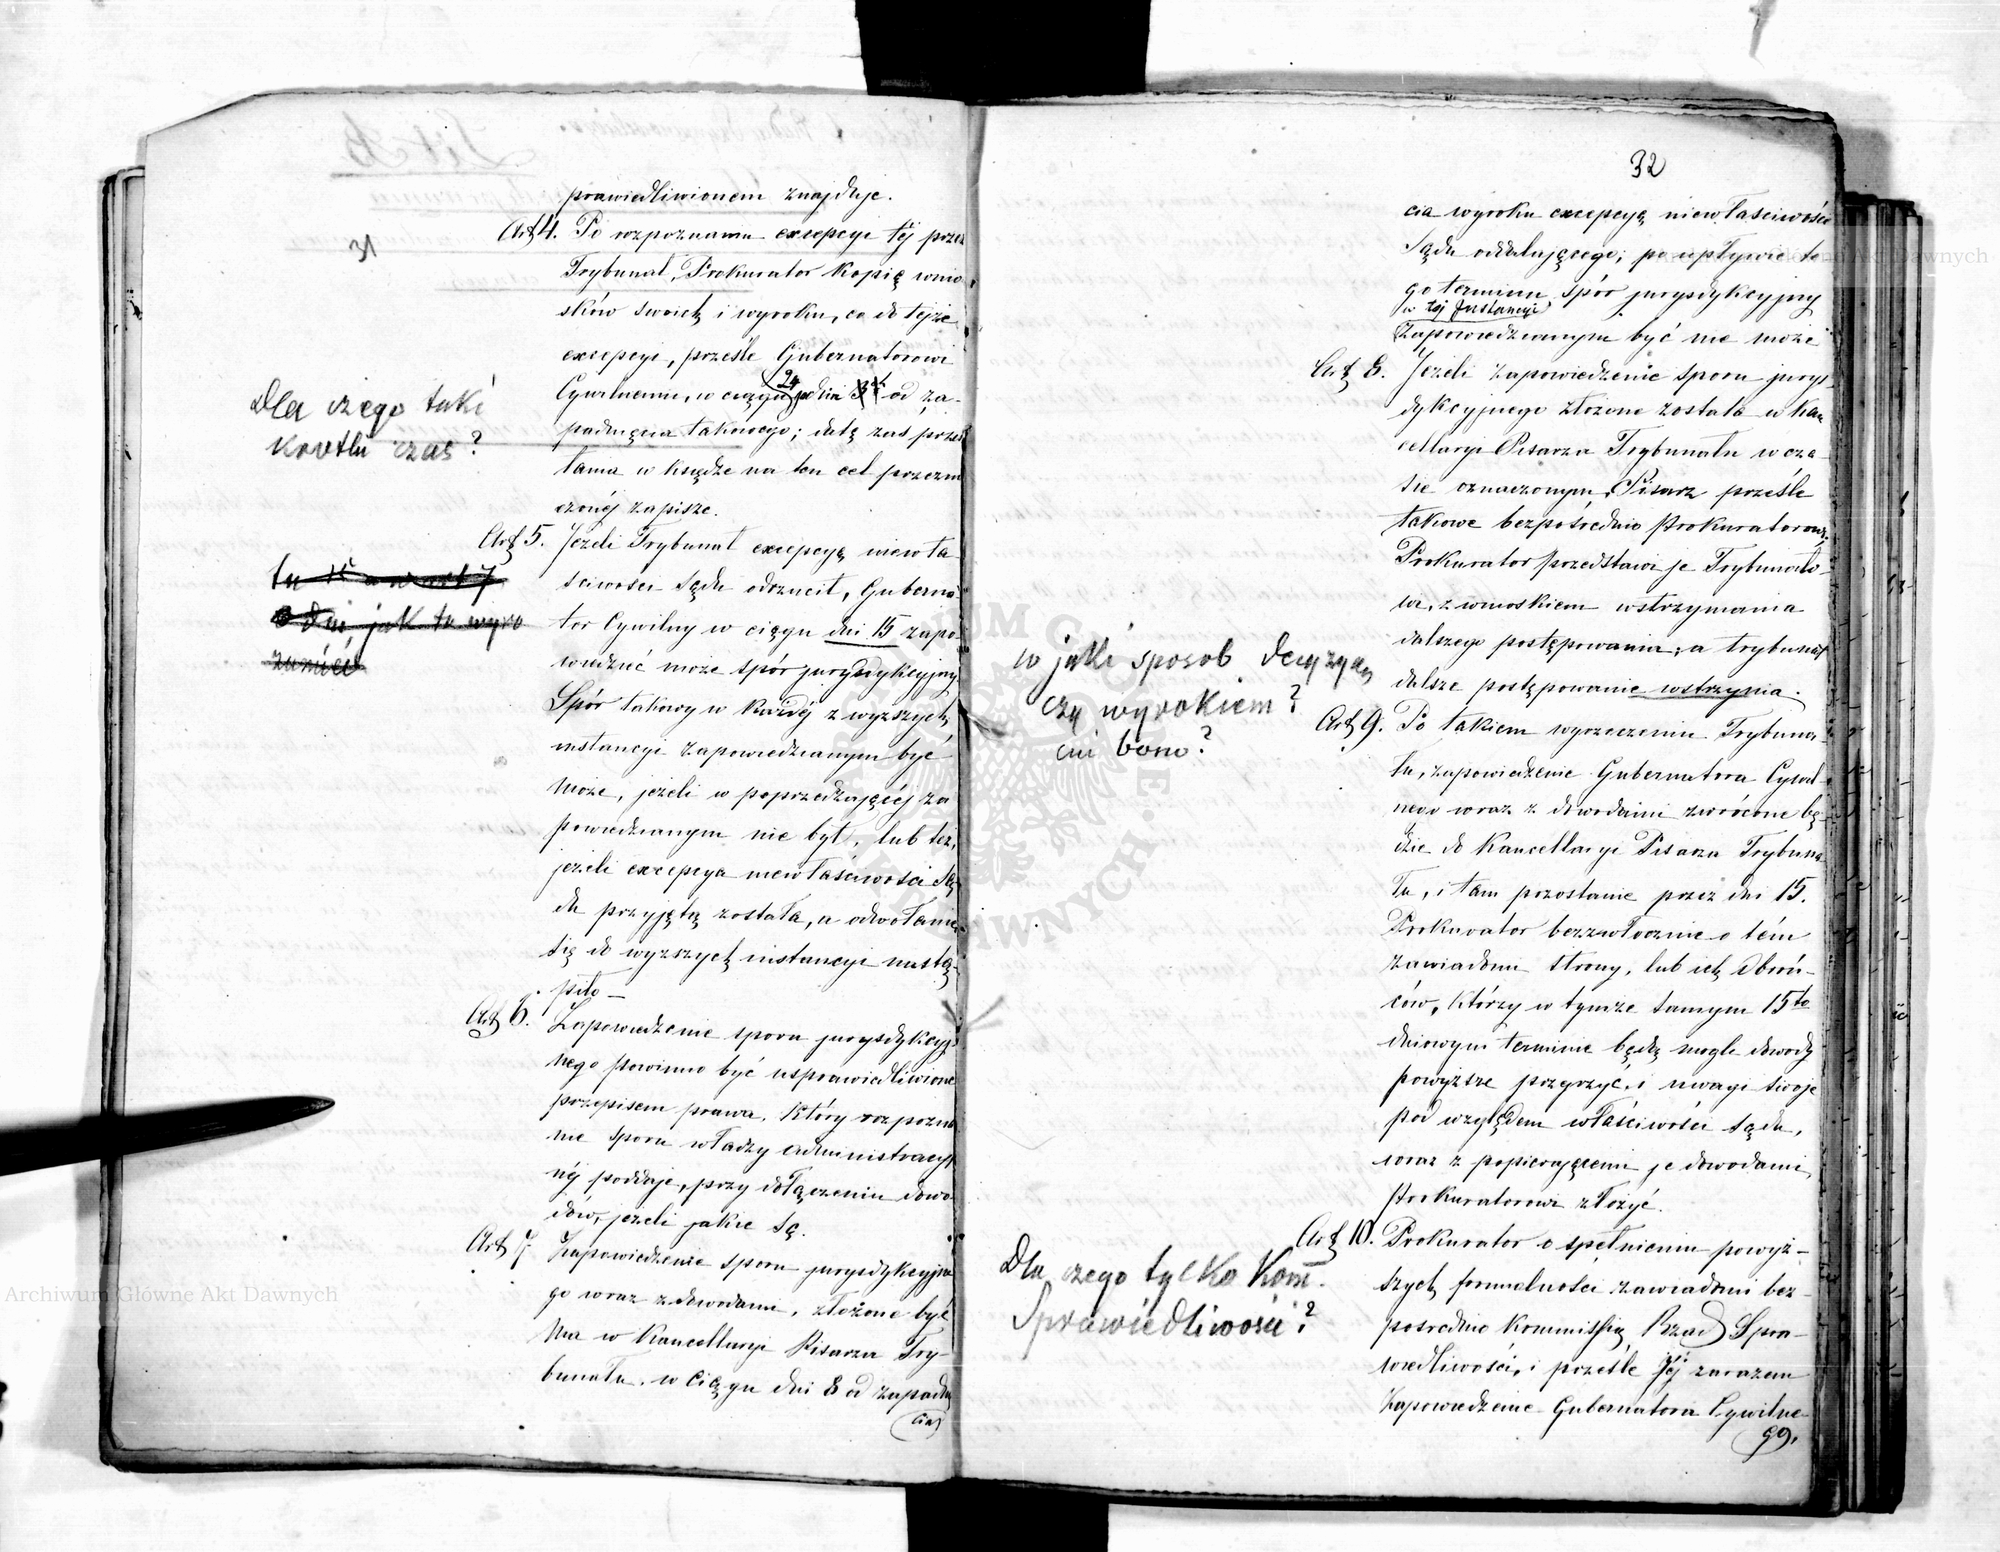 31
prawiedliwionem znajduje.
Art 4. Po rozpoznaniu excepcyi téj przez
Trybunał, Prokurator kopię wnio
sków swoich i wyroku, co do tejże
excepcyi, prześle Gubernatorowi
Cywilnemu, w ciągu 24 od za-
padnięcia takowego; datę zaś przes
łania w księdze na ten cel przezna
czonéj zapisze.
Dla czego taki
krotki czas?
Art 5. Jeżeli Trybunał excepcyą niewła
sciwości Sądu odrzucił, Guberna
tor Cywilny w ciągu dni 15 zapo
wiedzieć może spór jurysdykcyjny.
Spór takowy w każdéj z wyższych
instancyi zapowiedzianym być
może, jeżeli w poprzedzającéj za
powiedzianym nie był, lub też,
jeżeli excepcya niewłaściwości Są
du przyjętą została, a odwołanie
się do wyższych instancyi nastą-
piło —
Art 6. Zapowiedzenie sporu jurysdykcyj
nego powinno być usprawiedliwione
przepisem prawa, który rozpozna
nie sporu władzy administracyj
néj poddaje, przy dołączeniu dowo
dów, jeżeli jakie są.
Art 7. Zapowiedzenie sporu jurysdykcyjne
go wraz z dowodami, złożone być
ma w Kancellaryi Pisarza Try-
bunału, w ciągu dni 8 od zapadnię
cia
32
cia wyroku excepcyą niewłaściwości
Sądu oddalającego; po upływie te
go terminu spór jurysdykcyjny
w téj Instancyi
zapowiedzianym być nie może
Art 8. Jeżeli zapowiedzenie sporu jurys
dykcyjnego złożone zostało w Kan
cellaryi Pisarza Trybunału w cza
sie oznaczonym, Pisarz prześle
takowe bezpośrednio Prokuratorowi,
Prokurator przedstawi je Trybunało-
wi, z wnioskiem wstrzymania
dalszego postępowania, a trybunał
dalsze postępowanie wstrzyma.
w jaki sposob decyzyą
czy wyrokiem?
cui bono?
Art 9. Po takiem wyrzeczeniu Trybuna-
łu, zapowiedzenie Gubernatora Cywil
nego wraz z dowodami zwrócone bę-
dzie do Kancellaryi Pisarza Trybuna
łu, i tam pozostanie przez dni 15.
Prokurator bezzwłocznie o tém
zawiadomi strony, lub ich Obroń-
ców, którzy w tymże samym 15to
dniowym terminie będą mogli dowody
powyższe przejrzyć, i uwagi swoje
pod względem właściwości Sądu,
wraz z popierającemi je dowodami,
Prokuratorowi złożyć.
Art 10. Prokurator o spełnieniu powyż-
szych formalności zawiadomi bez-
pośrednio Kommissyą Rząd Spra-
wiedliwości, i prześle Jéj zarazem
zapowiedzenie Gubernatora Cywilne
go,
Dla czego tylko Kom.
Sprawiedliwości?
Archiwum Główne Akt Dawnych